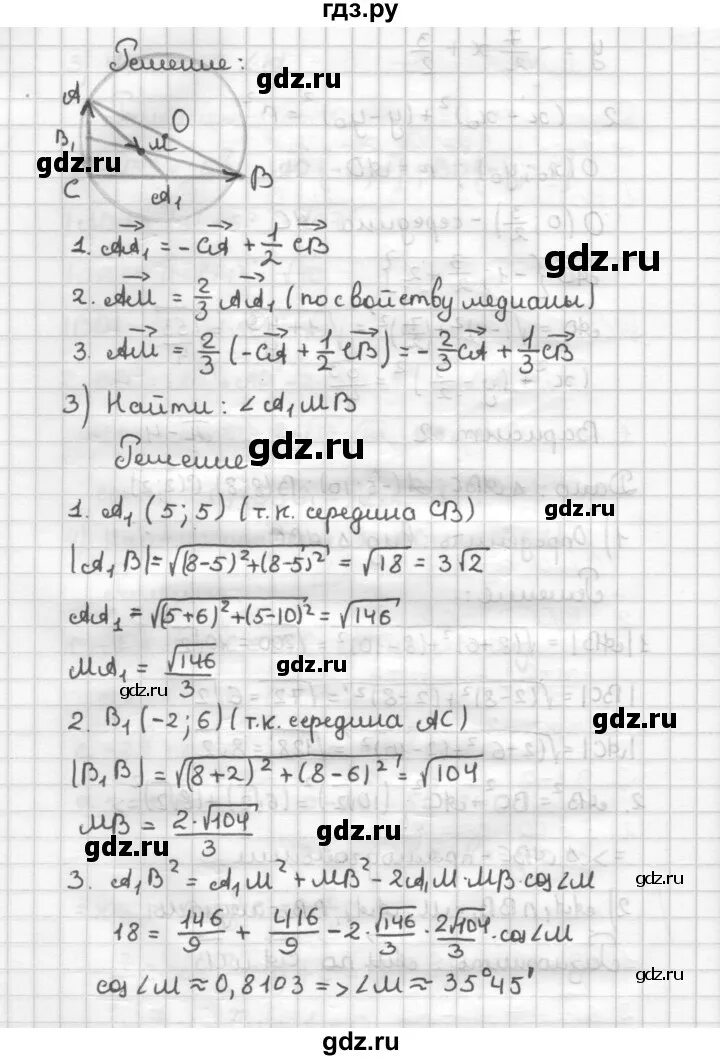 гдз.ру
Решение:
gdz.ru
A
O
B₁
M
gdz.ru
C
A₁
B
1. AA₁ = -CA + 1/2 CB
gdz.ru
2. AM = 2/3 AA₁ (по свойству медианы)
3. AM = 2/3 (-CA + 1/2 CB) = -2/3 CA + 1/3 CB
3) Найти: ∠A₁MB
Решение
gdz.ru
1. A₁ (5; 5) (т.к. середина CB)
gdz.ru
|A₁B| = √(8-5)²+(8-5)² = √18 = 3√2
AA₁ = √(5+6)²+(5-10)² = √146
MA₁ = √146/3
gdz.ru
gdz.ru
2. B₁ (-2; 6) (т.к. середина AC)
gdz.ru
|B₁B| = √(8+2)²+(8-6)² = √104
MB = 2·√104/3
gdz.ru
gdz.ru
3. A₁B² = A₁M² + MB² - 2A₁M·MB·cos∠M
gdz.ru
18 = 146/9 + 416/9 - 2·√146/3·2√104/3·cos∠M
gdz.ru
gdz.ru
cos∠M ≈ 0,8103 => ∠M ≈ 35°45'
gdz.ru
gdz.ru